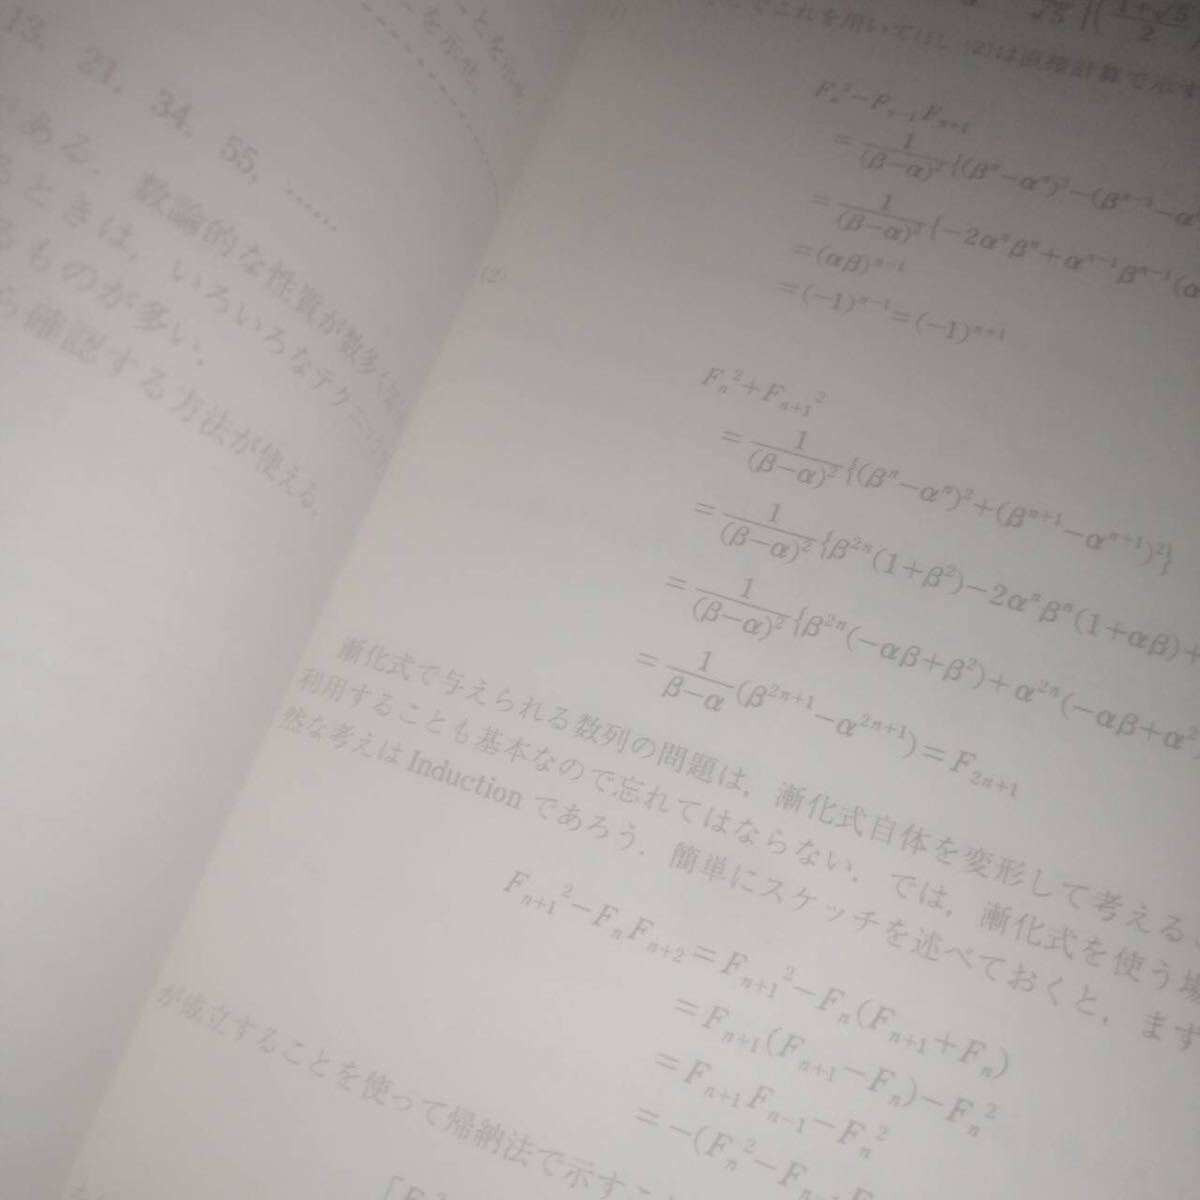 13, 21, 34, 55, ……
ある. 数論的な性質が数多く
ときは, いろいろなテクニック
ものが多い.
確認する方法が使える.
とを示せ.
を示せ.
これを用いて(1), (2)は直接計算で示す
F_n^2−F_{n−1}F_{n+1}
=1/(β−α)^2{(β^n−α^n)^2−(β^{n−1}−α
=1/(β−α)^2{−2α^nβ^n+α^{n−1}β^{n−1}(α
=(αβ)^{n−1}
=(−1)^{n−1}=(−1)^{n+1}
(2)
F_n^2+F_{n+1}^2
=1/(β−α)^2{(β^n−α^n)^2+(β^{n+1}−α^{n+1})^2}
=1/(β−α)^2{β^{2n}(1+β^2)−2α^nβ^n(1+αβ)+
=1/(β−α)^2{β^{2n}(−αβ+β^2)+α^{2n}(−αβ+α^2
=1/(β−α)(β^{2n+1}−α^{2n+1})=F_{2n+1}
漸化式で与えられる数列の問題は, 漸化式自体を変形して考える
利用することも基本なので忘れてはならない. では, 漸化式を使う場
然な考えは Induction であろう. 簡単にスケッチを述べておくと, まず
F_{n+1}^2−F_nF_{n+2}=F_{n+1}^2−F_n(F_{n+1}+F_n)
=F_{n+1}(F_{n+1}−F_n)−F_n^2
=F_{n+1}F_{n−1}−F_n^2
=−(F_n^2−F_{n−1}F_{n+1}
が成立することを使って帰納法で示すこ